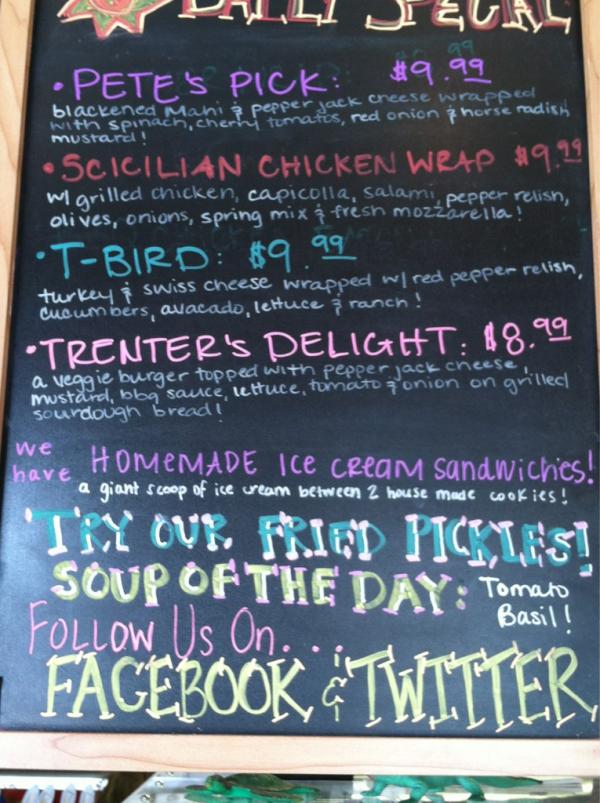 DAILY SPECIAL
• PETE'S PICK: $9.99
blackened Mahi & pepper jack cheese wrapped
with spinach, cherry tomatos, red onion & horse radish
mustard!
• SCICILIAN CHICKEN WRAP $9.99
w/ grilled chicken, capicolla, salami, pepper relish,
olives, onions, spring mix & fresh mozzarella!
• T-BIRD: $9.99
turkey & swiss cheese wrapped w/ red pepper relish,
cucumbers, avacado, lettuce & ranch!
• TRENTER'S DELIGHT: $8.99
a veggie burger topped with pepper jack cheese,
mustard, bbq sauce, lettuce, tomato & onion on grilled
sourdough bread!
we have HOMEMADE ICE CREAM sandwiches!
a giant scoop of ice cream between 2 house made cookies!
TRY OUR FRIED PICKLES!
SOUP OF THE DAY: Tomato
Basil!
FOLLOW Us On...
FACEBOOK & TWITTER